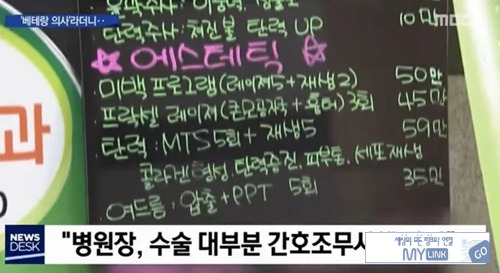 '베테랑 의사'라더니‥
MBC
10만
탄력주사·처진볼 탄력 UP
에스테틱
미백 프로그램(레이저5+재생2) 50만
프락셀 레이저(큰모공자국+흉터) 3회 45만
탄력: MTS 5회+재생5 59만
콜라겐 형성, 탄력증진, 피부톤, 세포재생
여드름: 압출+PPT 5회 35만
과
NEWS
DESK
"병원장, 수술 대부분 간호조무사
세상의 모든 링크의 연결
MYLINK
GO